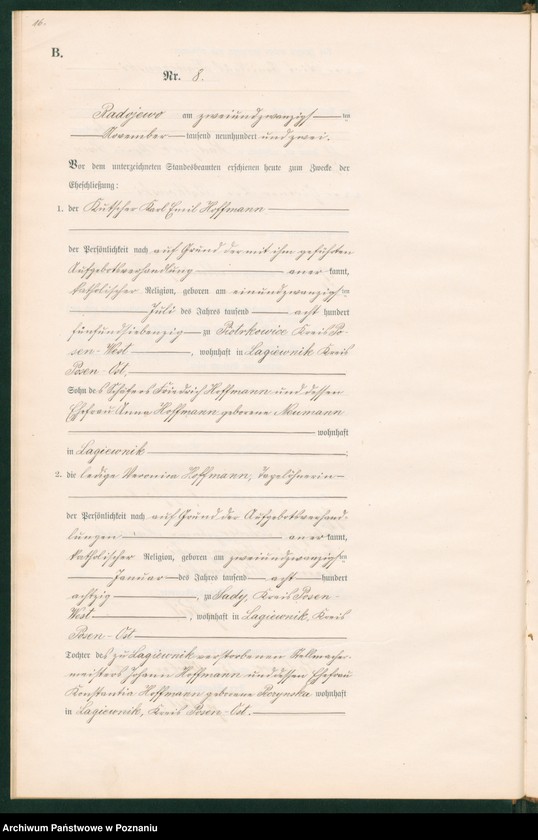 16.
B.
Nr. 8.
Radojewo am zweiundzwanzigsten
November tausend neunhundert und zwei.
Vor dem unterzeichneten Standesbeamten erschienen heute zum Zwecke der
Eheschließung:
1. der Kutscher Karl Emil Hoffmann
der Persönlichkeit nach auf Grund der mit ihm geführten
Aufgebotsverhandlung anerkannt,
katholischer Religion, geboren am einundzwanzigsten
Juli des Jahres tausend acht hundert
fünfundsiebenzig zu Piotrkowice Kreis Po-
sen-West, wohnhaft in Lagiewnik Kreis
Posen-Ost,
Sohn des Schäfers Friedrich Hoffmann und dessen
Ehefrau Anna Hoffmann geborene Neumann
wohnhaft
in Lagiewnik.
2. die ledige Veronica Hoffmann, Tagelöhnerin
der Persönlichkeit nach auf Grund der Aufgebotsverhand-
lungen anerkannt,
katholischer Religion, geboren am zweiundzwanzigsten
Januar des Jahres tausend acht hundert
achtzig, zu Sady, Kreis Posen-
West, wohnhaft in Lagiewnik, Kreis
Posen-Ost
Tochter des zu Lagiewnik verstorbenen Stellmacher-
meisters Johann Hoffmann und dessen Ehefrau
Konstantia Hoffmann geborene wohnhaft
in Lagiewnik, Kreis Posen-Ost.
Archiwum Państwowe w Poznaniu